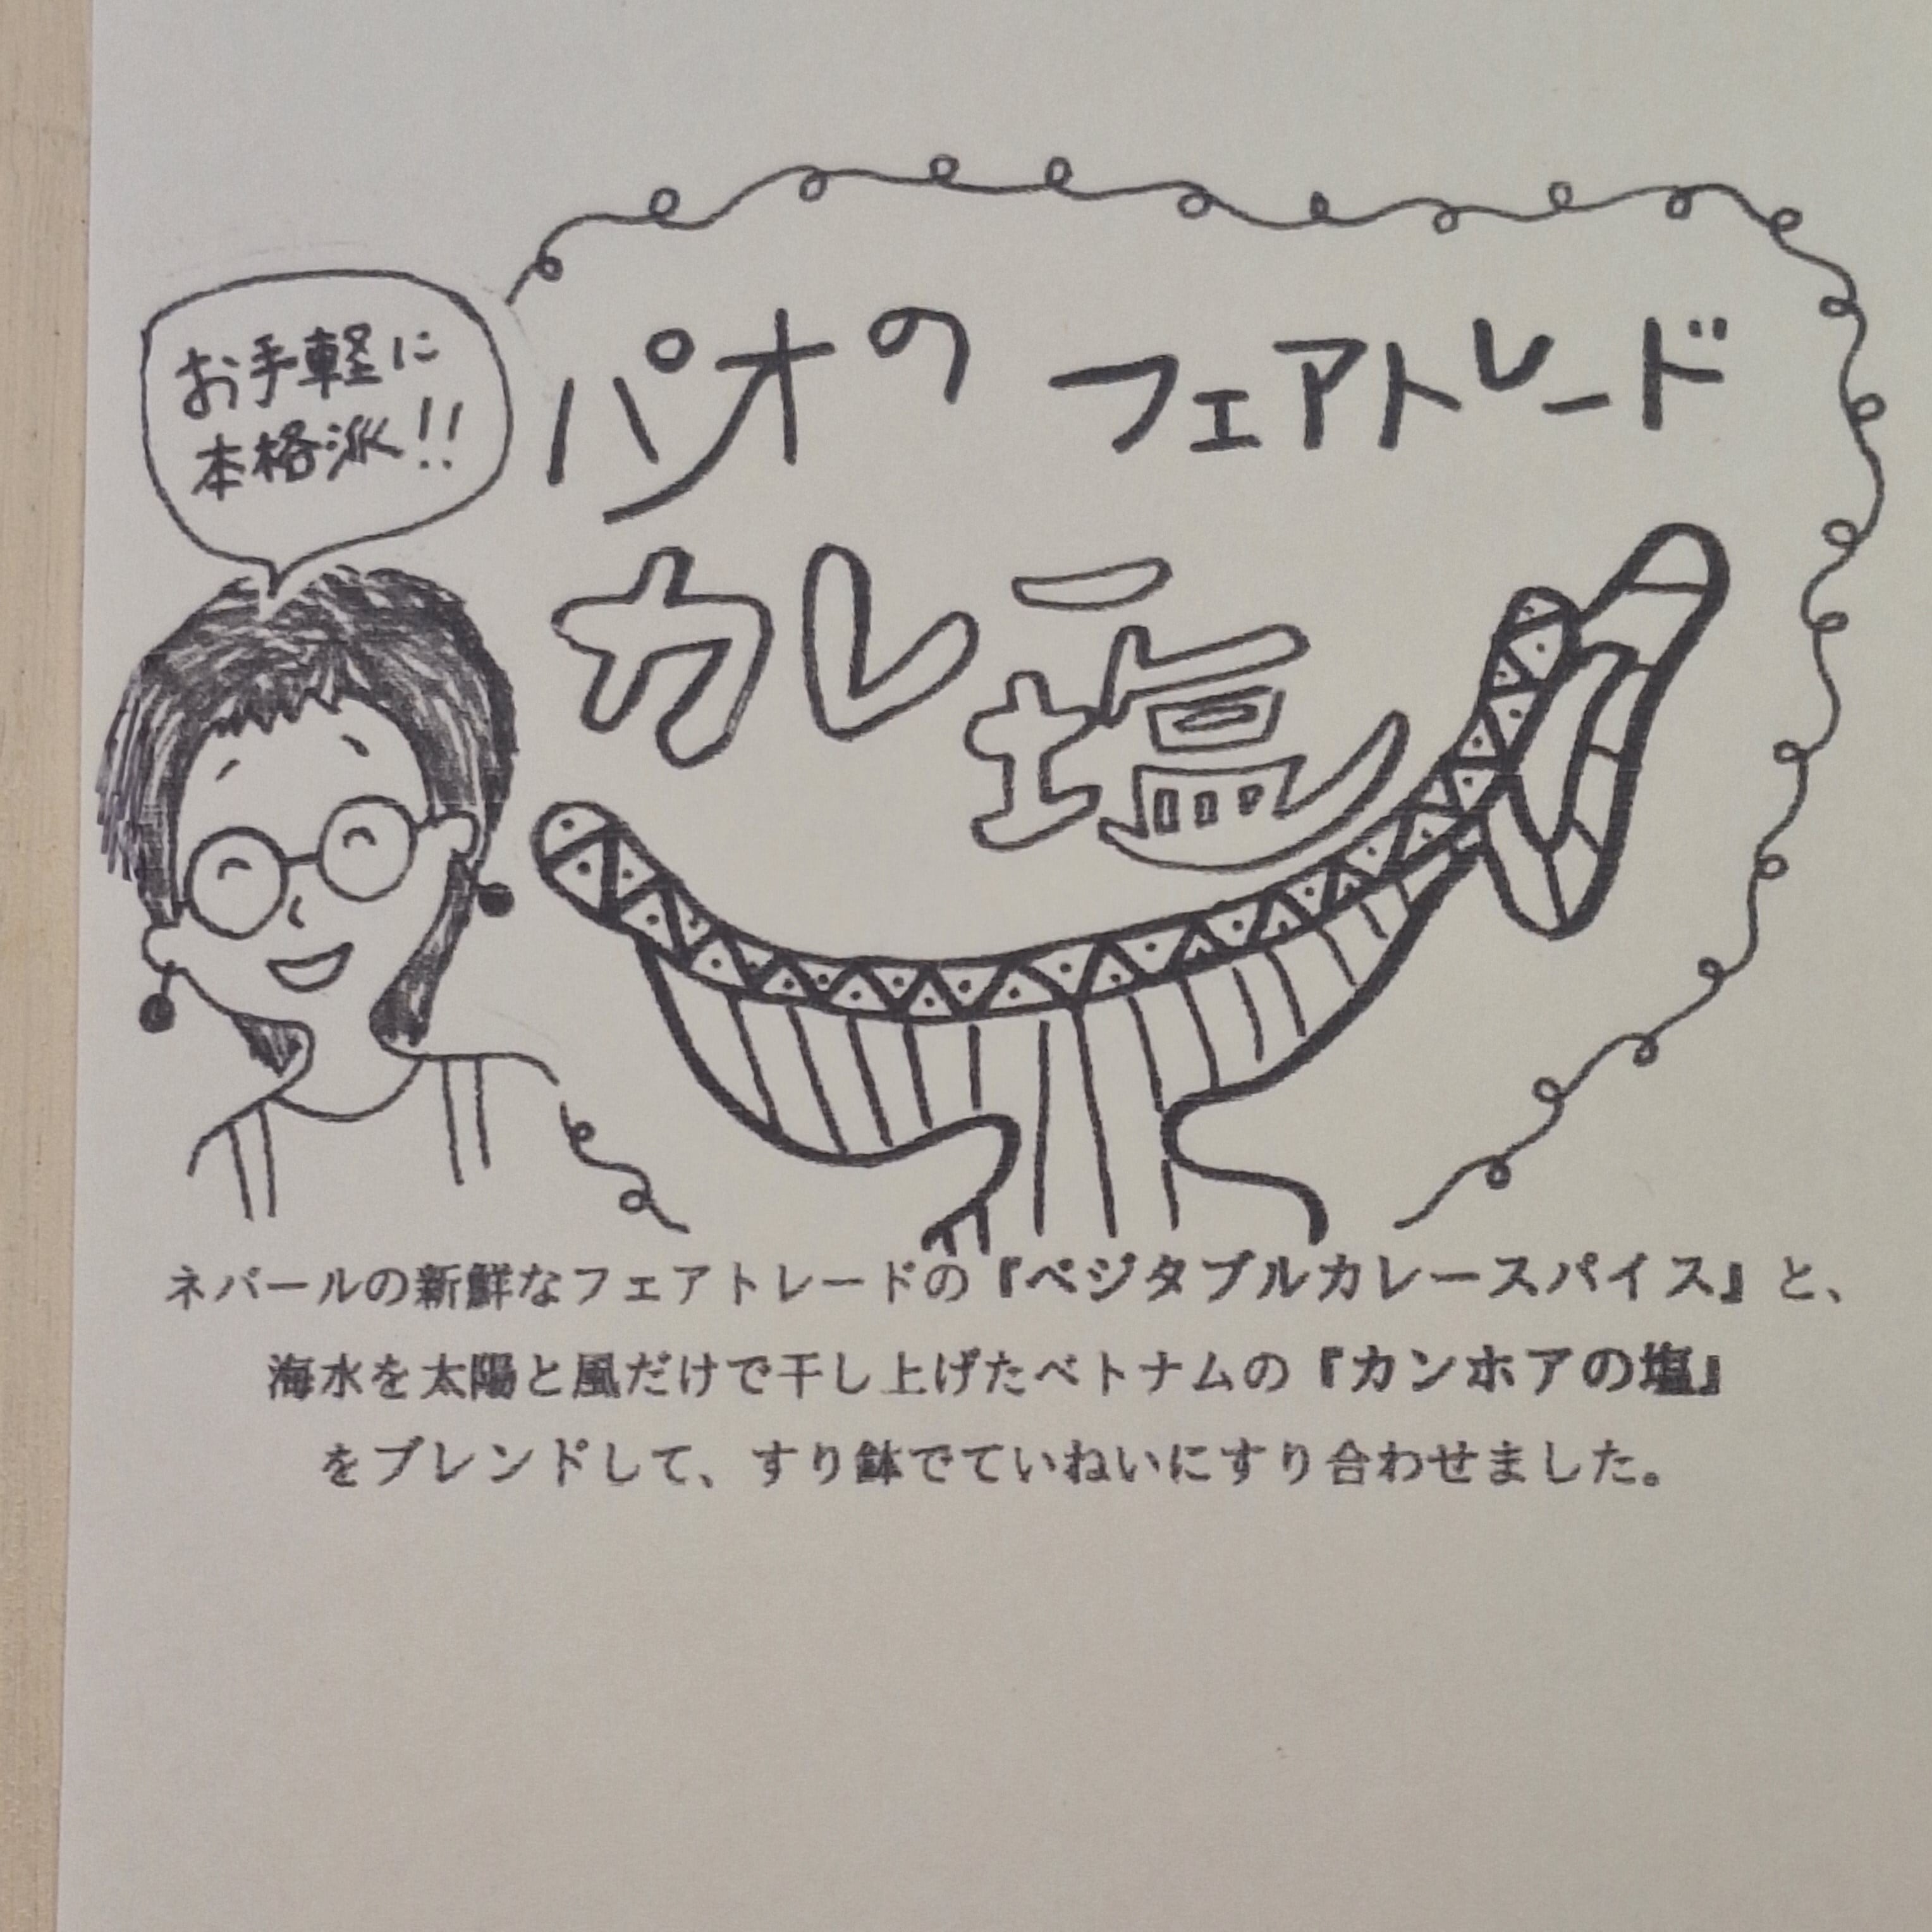 お手軽に
本格派!!
パオの フェアトレード
カレー
塩
ネパールの新鮮なフェアトレードの『ベジタブルカレースパイス』と、
海水を太陽と風だけで干し上げたベトナムの『カンホアの塩』
をブレンドして、すり鉢でていねいにすり合わせました。